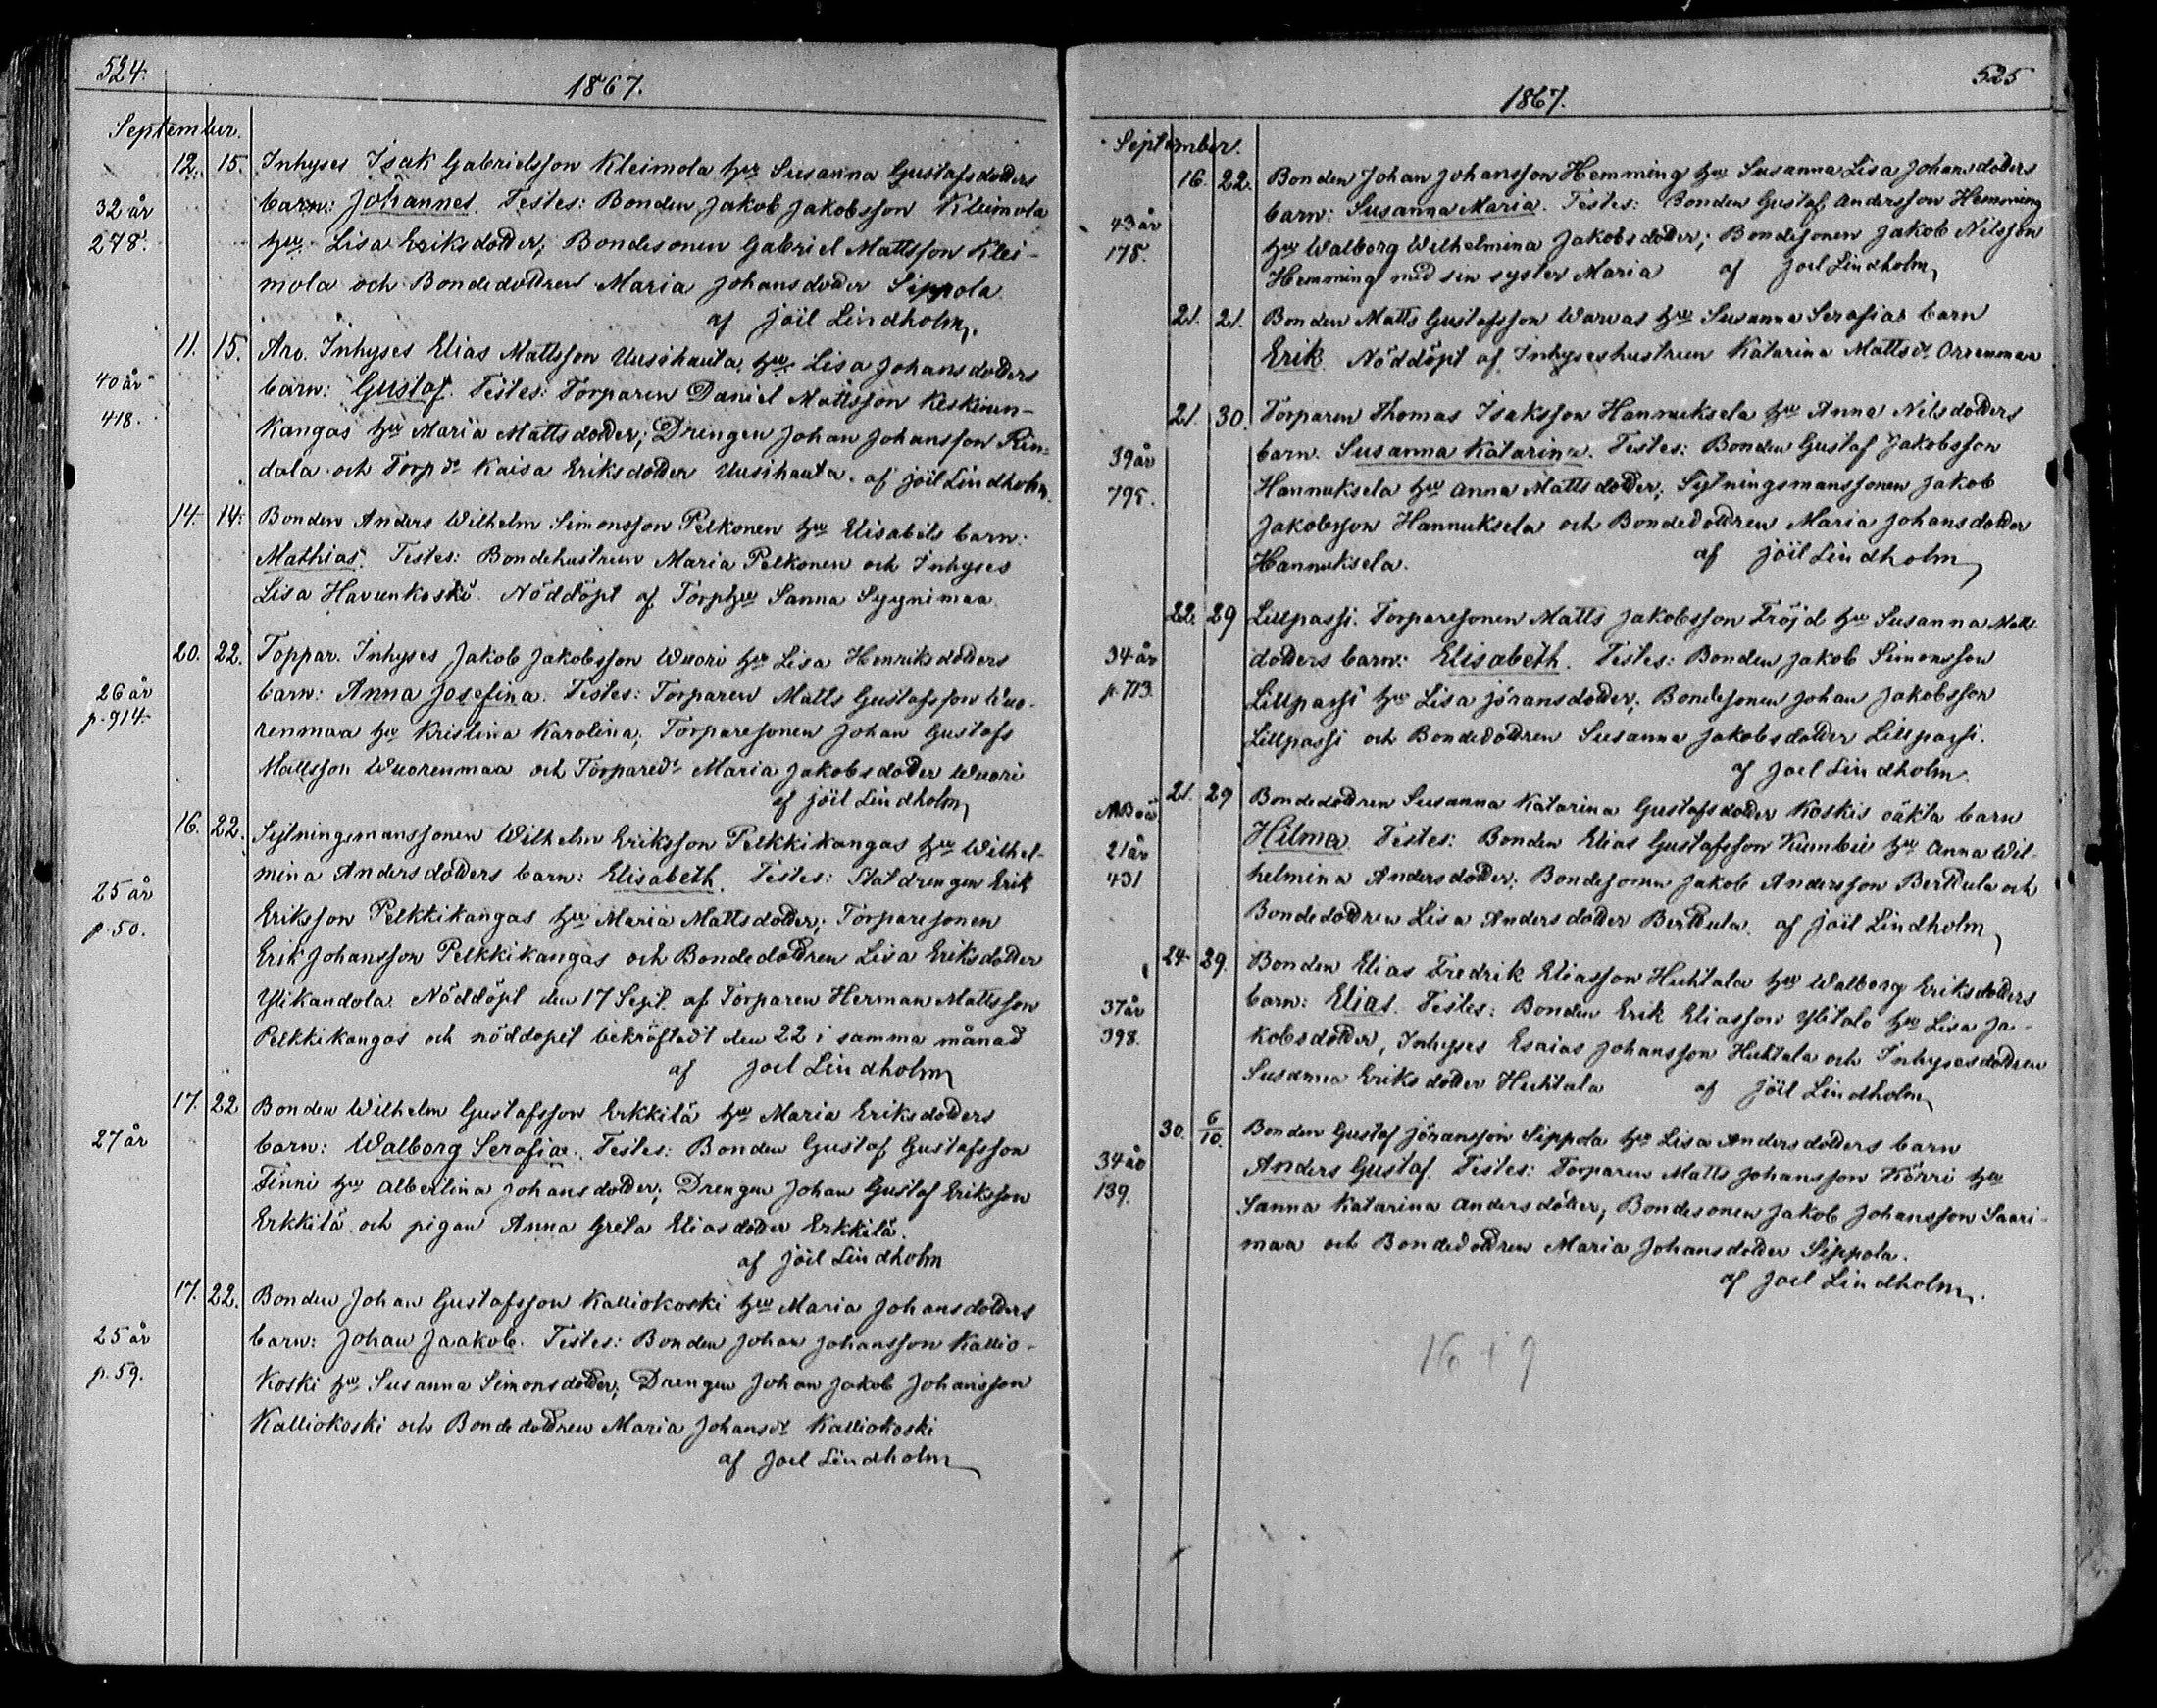 524.
1867.
September.
12. 15. Inhyses Isak Gabrielsson Kleimola hu Susanna Gustafsdotters
32 år barn: Johannes. Testes: Bonden Jakob Jakobsson Kleimola
278. hu Lisa Eriksdotter; Bondesonen Gabriel Mattsson Klei-
mola och Bondedottren Maria Johansdotter Sippola
af Joël Lindholm.
11. 15. Aro. Inhyses Elias Mattsson Uusihauta hu Lisa Johansdotters
40 år barn: Gustaf. Testes: Torparen Daniel Mattsson Keskinen-
418. kangas hu Maria Mattsdotter; Drengen Johan Johansson Rin-
dala och Torp dr Kaisa Eriksdotter Uusihauta. af Joël Lindholm
14. 14. Bonden Anders Wilhelm Simonsson Pelkonen hu Elisabets barn:
Mathias. Testes: Bondehustrun Maria Pelkonen och Inhyses
Lisa Havunkoski. Nöddöpt af Torphu Sanna Syynimaa
20. 22. Toppar. Inhyses Jakob Jakobsson Wuori hu Lisa Henriksdotters
26 år barn: Anna Josefina. Testes: Torparen Matts Gustafsson Wuo-
p. 914. renmaa hu Kristina Karolina; Torparesonen Johan Gustafs
Mattsson Wuorenmaa och Torparedr Maria Jakobsdotter Wuori
af Joël Lindholm
16. 22. Sytningsmanssonen Wilhelm Eriksson Pelkkikangas hu Wilhel-
25 år mina Andersdotters barn: Elisabeth. Testes: Statdrengen Erik
p. 50. Eriksson Pelkkikangas hu Maria Mattsdotter; Torparesonen
Erik Johansson Pelkkikangas och Bondedottren Lisa Eriksdotter
Ylikandola. Nöddöpt den 17 Sept. af Torparen Herman Mattsson
Pelkkikangas och nöddopet bekräftadt den 22 i samma månad
af Joel Lindholm
17. 22 Bonden Wilhelm Gustafsson Erkkilä hu Maria Eriksdotters
27 år barn: Walborg Serafia. Testes: Bonden Gustaf Gustafsson
Finni hu Albertina Johansdotter; Drengen Johan Gustaf Eriksson
Erkkilä och pigan Anna Greta Eliasdotter Erkkilä.
af Joël Lindholm
17. 22. Bonden Johan Gustafsson Kalliokoski hu Maria Johansdotters
25 år barn: Johan Jaakob. Testes: Bonden Johan Johansson Kallio-
p. 59. koski hu Susanna Simonsdotter; Drengen Johan Jakob Johansson
Kalliokoski och Bondedottren Maria Johansdr Kalliokoski
af Joel Lindholm
525
1867.
September.
16. 22. Bonden Johan Johansson Hemming hu Susanna Lisa Johansdotters
43 år barn: Susanna Maria. Testes: Bonden Gustaf Andersson Hemming
178. hu Walborg Wilhelmina Jakobsdotter; Bondesonen Jakob Nilsson
Hemming med sin syster Maria af Joel Lindholm
21. 21. Bonden Matts Gustafsson Warvas hu Susanna Serafias barn
Erik. Nöddöpt af Inhyseshustrun Katarina Mattsdr Orrenmaa
21. 30. Torparen Thomas Isaksson Hannuksela hu Anna Nilsdotters
39 år barn. Susanna Katarina. Testes: Bonden Gustaf Jakobsson
795. Hannuksela hu Anna Mattsdotter; Sytningsmanssonen Jakob
Jakobsson Hannuksela och Bondedottren Maria Johansdotter
Hannuksela. af Joël Lindholm
22. 29 Lillpassi. Torparesonen Matts Jakobsson Fröjd hu Susanna Matts-
34 år dotters barn: Elisabeth. Testes: Bonden Jakob Simonsson
p. 713. Lillpassi hu Lisa Jöransdotter; Bondesonen Johan Jakobsson
Lillpassi och Bondedottren Susanna Jakobsdotter Lillpassi.
af Joel Lindholm.
21. 29 Bondedottren Susanna Katarina Gustafsdotter Koskis oäkta barn
21 år Hilma. Testes: Bonden Elias Gustafsson hu Anna Wil-
431 helmina Andersdotter; Bondesonen Jakob Andersson Berttula och
Bondedottren Lisa Andersdotter Berttula. af Joël Lindholm
24. 29. Bonden Elias Fredrik Eliasson Huhtala hu Walborg Eriksdotters
37 år barn: Elias. Testes: Bonden Erik Eliasson Ylitalo hu Lisa Ja-
398. kobsdotter, Inhyses Esaias Johansson Huhtala och Inhysesdottren
Susanna Eriksdotter Huhtala af Joël Lindholm
30. 6/10. Bonden Gustaf Jöransson Sippola hu Lisa Andersdotters barn
34 år Anders Gustaf. Testes: Torparen Matts Johansson Körri hu
139. Sanna Katarina Andersdotter, Bondesonen Jakob Johansson Saari-
maa och Bondedottren Maria Johansdotter Sippola.
af Joel Lindholm.
16 + 9